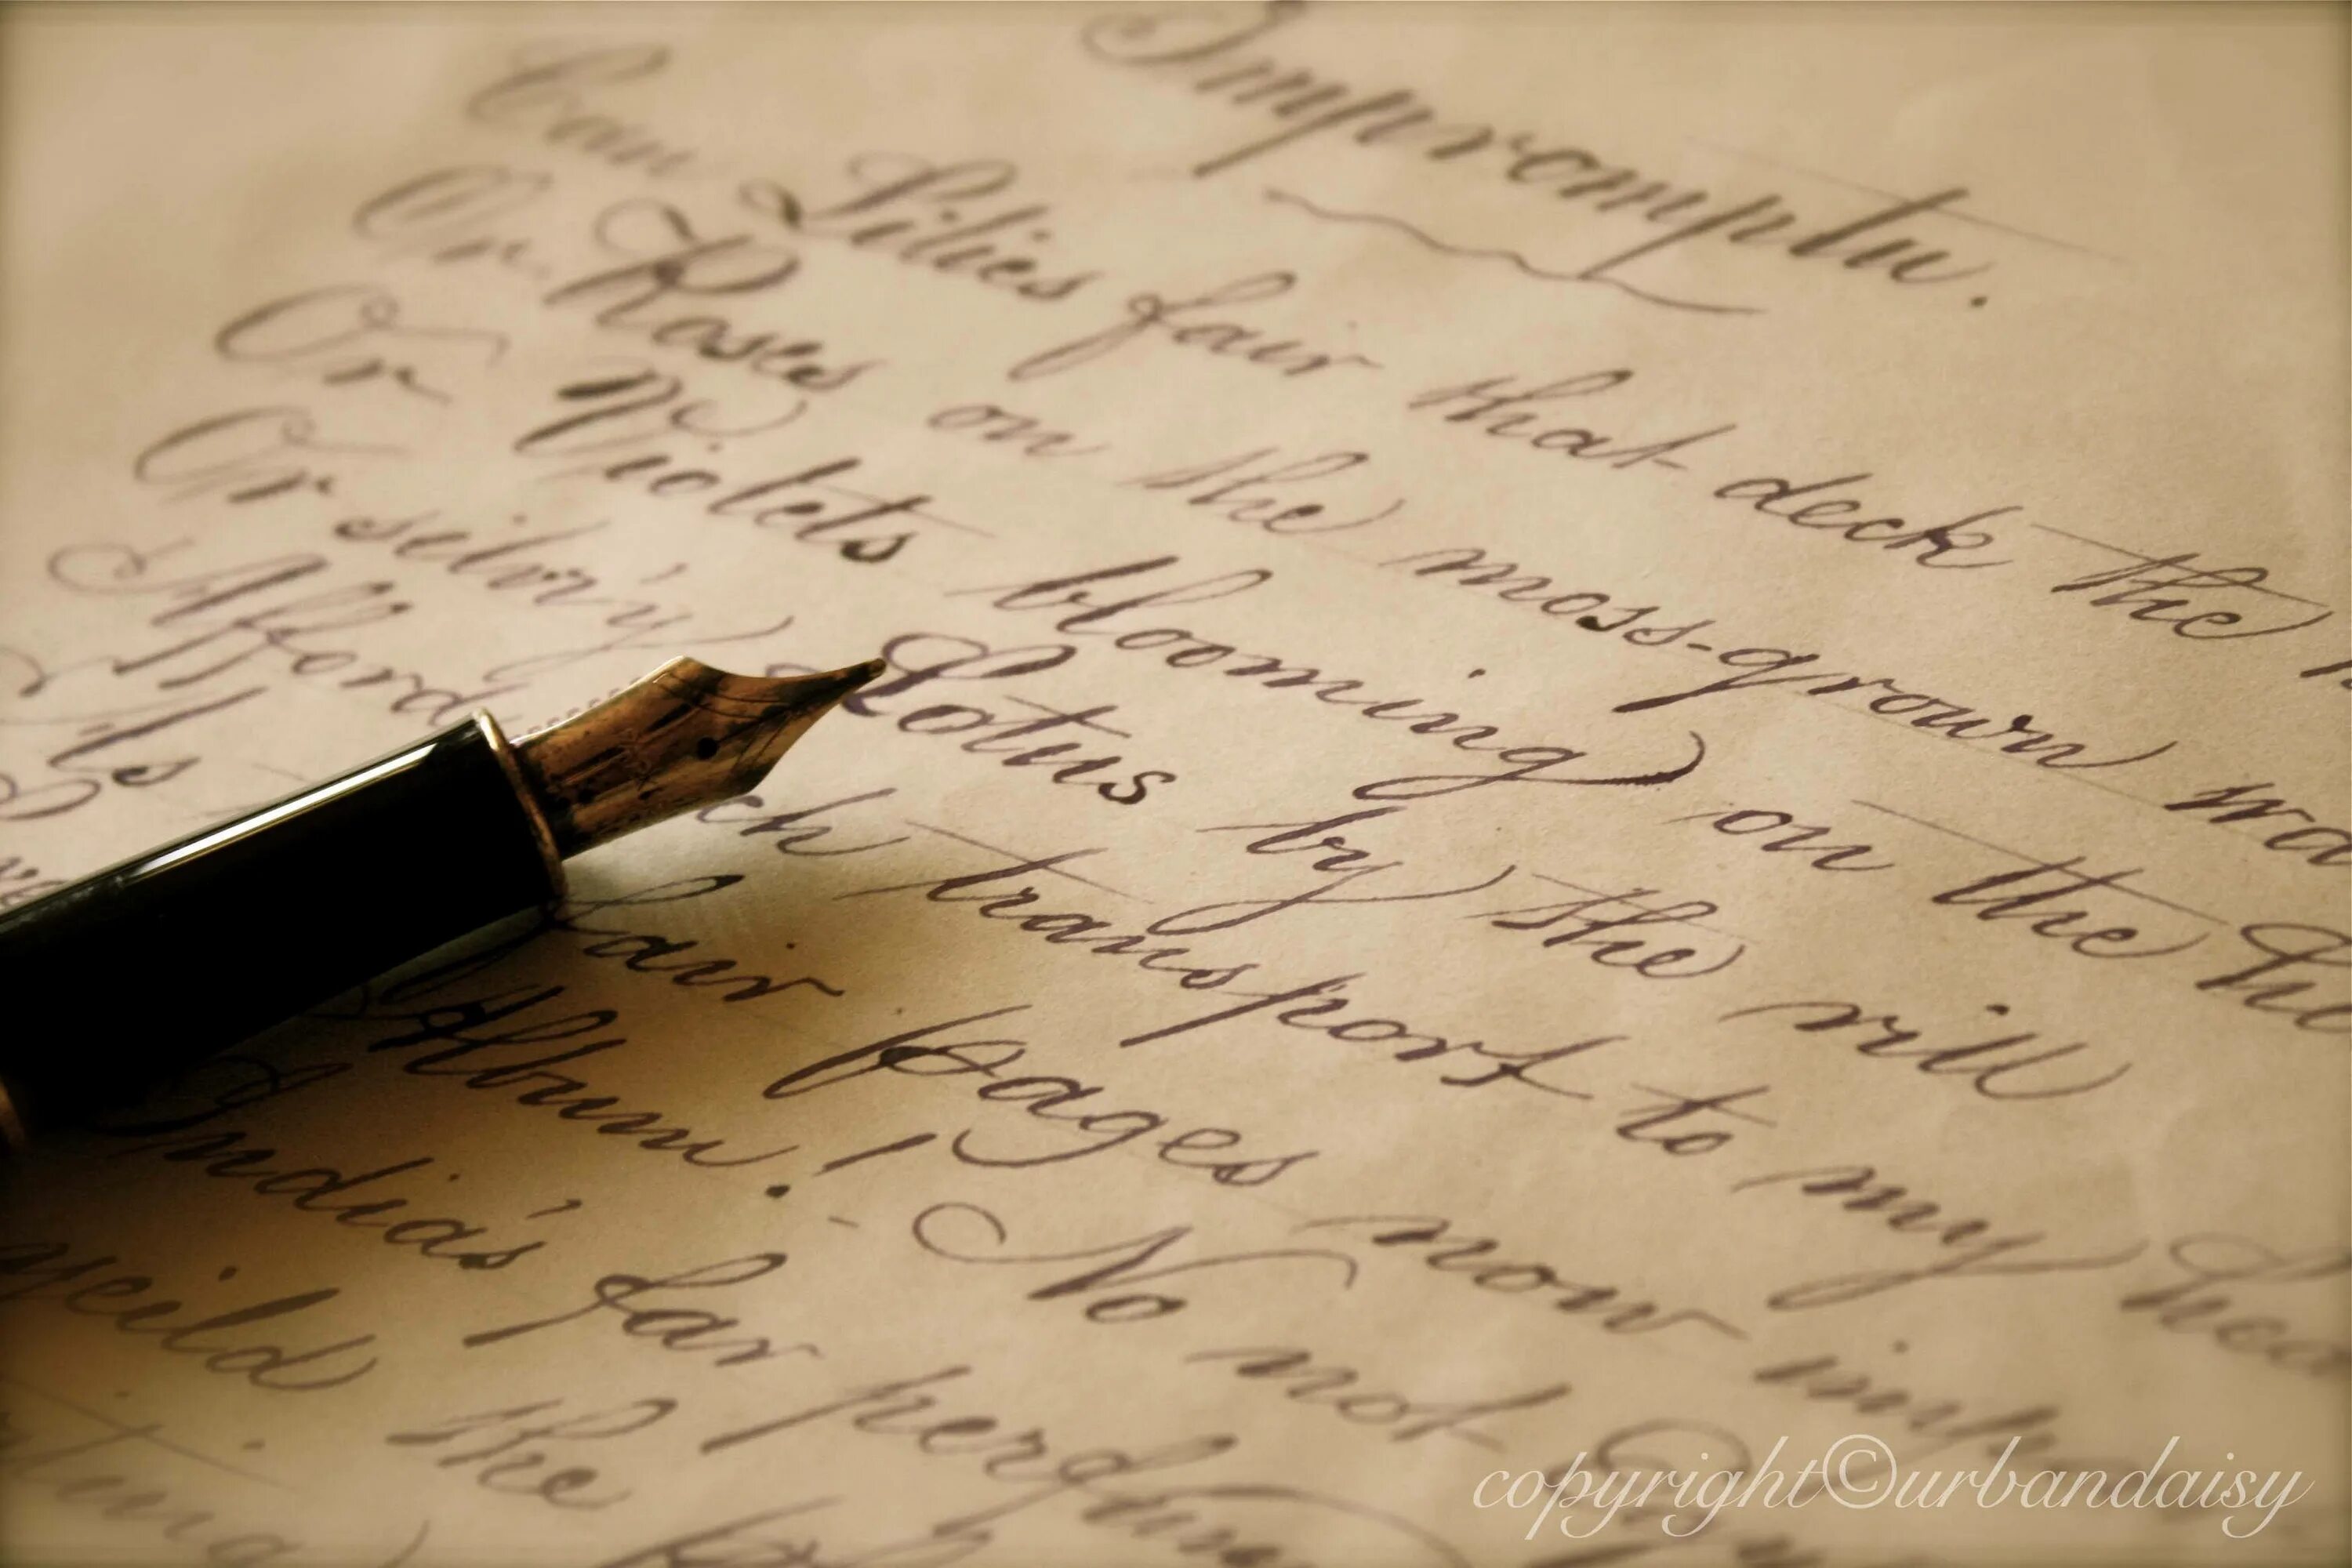 Impromptu.
Can Lilies fair that deck the
Or Roses on the moss-grown
Or Violets blooming on the
Or silv'ry Lotus by the rill
Afford transport to my
fair pages now
Album! No not
India's far
yeild the
copyright©urbandaisy